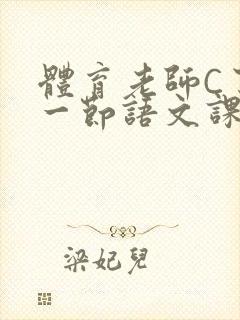 體育老師C了
一節語文課
梁妃兒